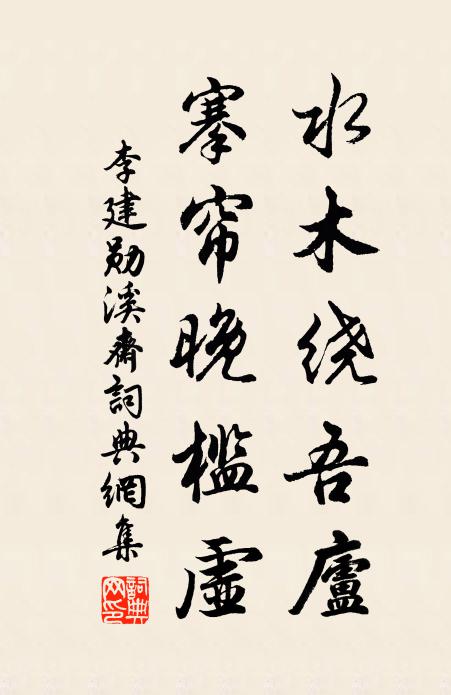 水木绕吾廬
搴帘晚槛虚
李建勋溪齋詞典網集
詞典网印